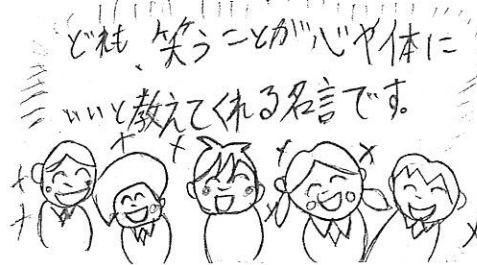 どれも、笑うことが心や体に
いいと教えてくれる名言です。